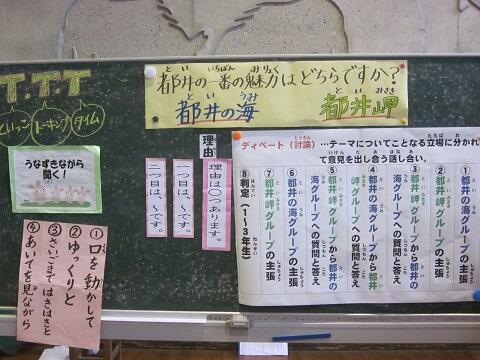 とい いちばん みりょく
都井の一番の魅力はどちらですか?
とい うみ
都井の海
とい みさき
都井岬
T.T.T
といっこ トーキング タイム
うなずきながら
聞く!
①口を動かして
②ゆっくりと
③さいごまではきはきと
④あいてを見ながら
理由
理由は〇つあります。
一つ目は、〜です。
二つ目は、〜です。
ディベート(討論)…テーマについてことなる立場に分かれ
て意見を出し合う話し合い。
①都井の海グループの主張
②都井岬グループの主張
③都井岬グループから都井の
海グループへの質問と答え
④都井の海グループから都井
岬グループへの質問と答え
⑤都井岬グループから都井の
海グループへの質問と答え
⑥都井の海グループの主張
⑦都井岬グループの主張
⑧判定(1〜3年生)